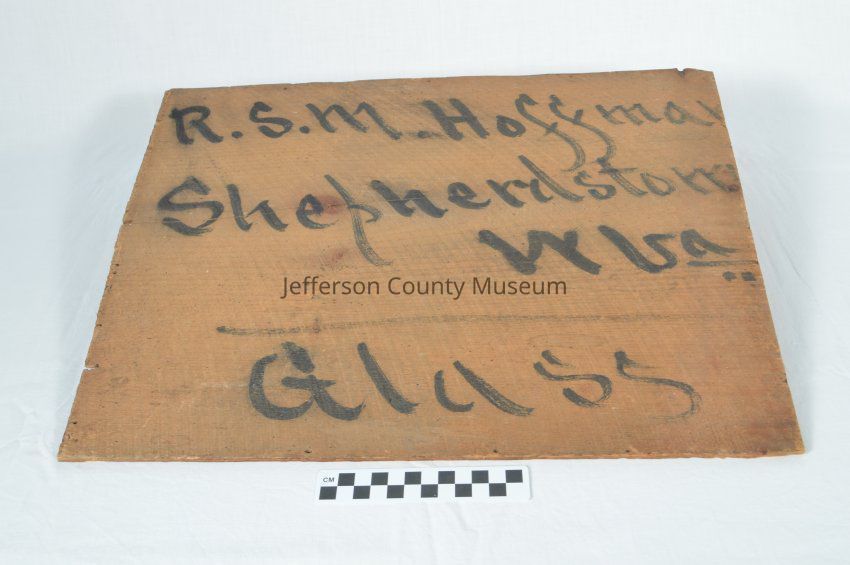 R.S.M. Hoffman
Shepherdstown
W Va
Jefferson County Museum
Glass
CM